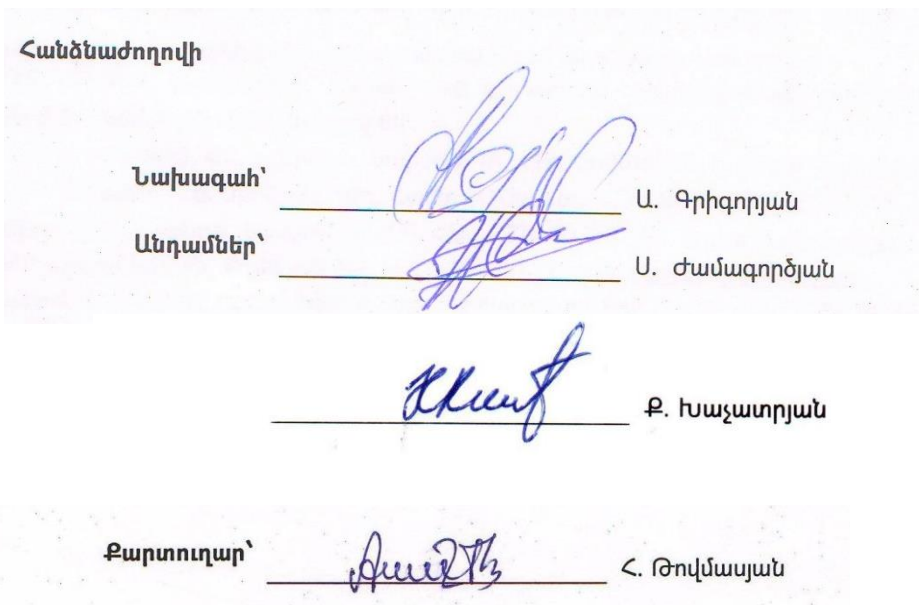 Հանձնաժողովի
Նախագահ՝ Ա. Գրիգորյան
Անդամներ՝
Ս. Ժամագործյան
Ք. Խաչատրյան
Քարտուղար՝ Հ. Թովմասյան